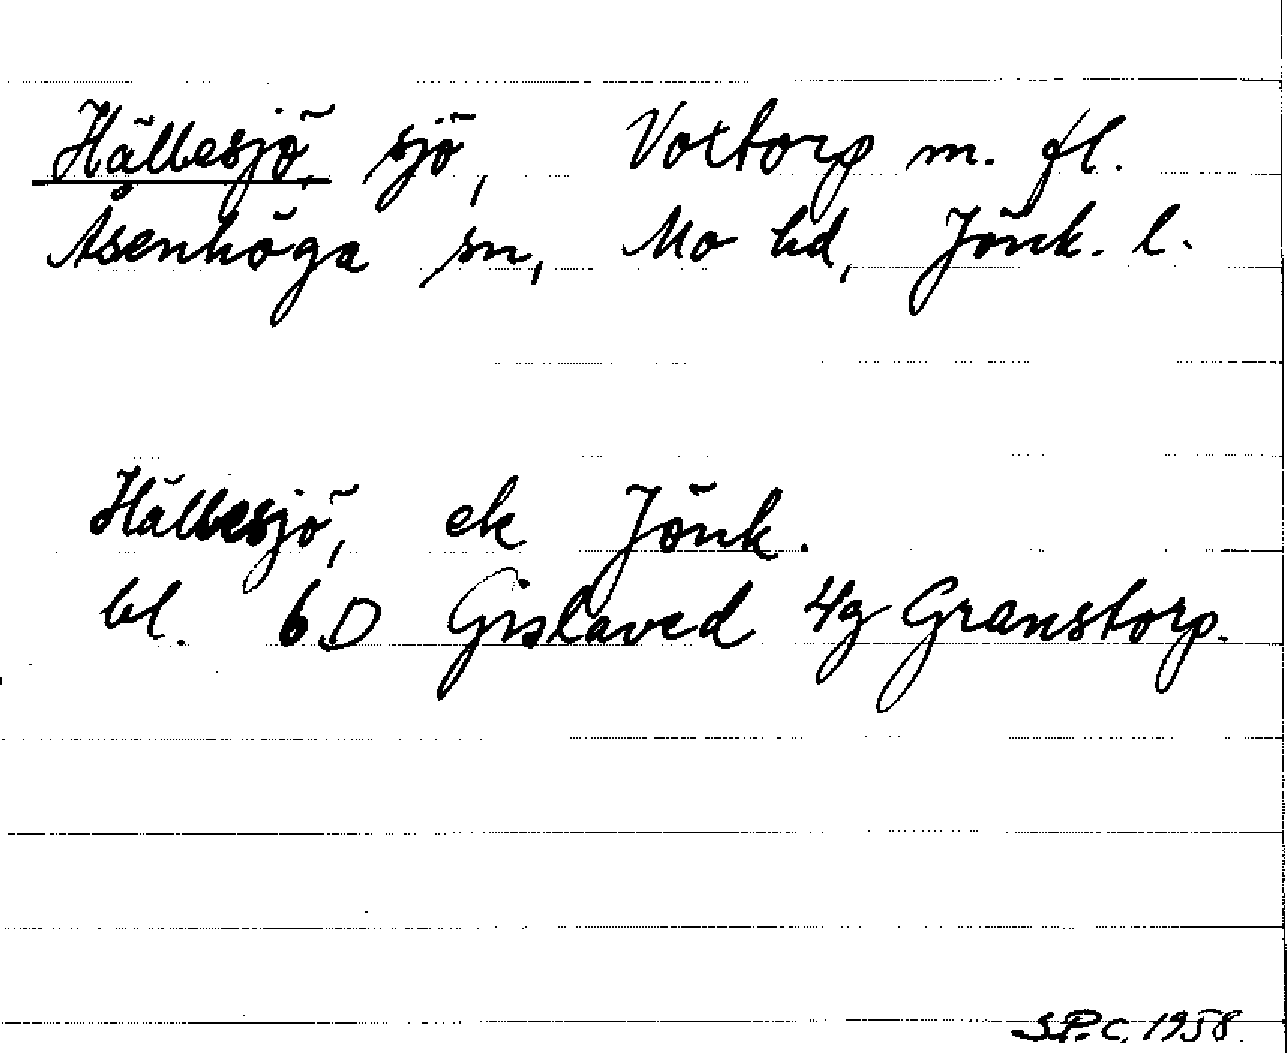 Hällesjö, sjö, Voxtorp m. fl.
Åsenhöga sn, Mo hd, Jönk. l.
Hällesjö, ek Jönk.
bl. 6D Gislaved 4g Granstorp.
S.P.C. 1958.